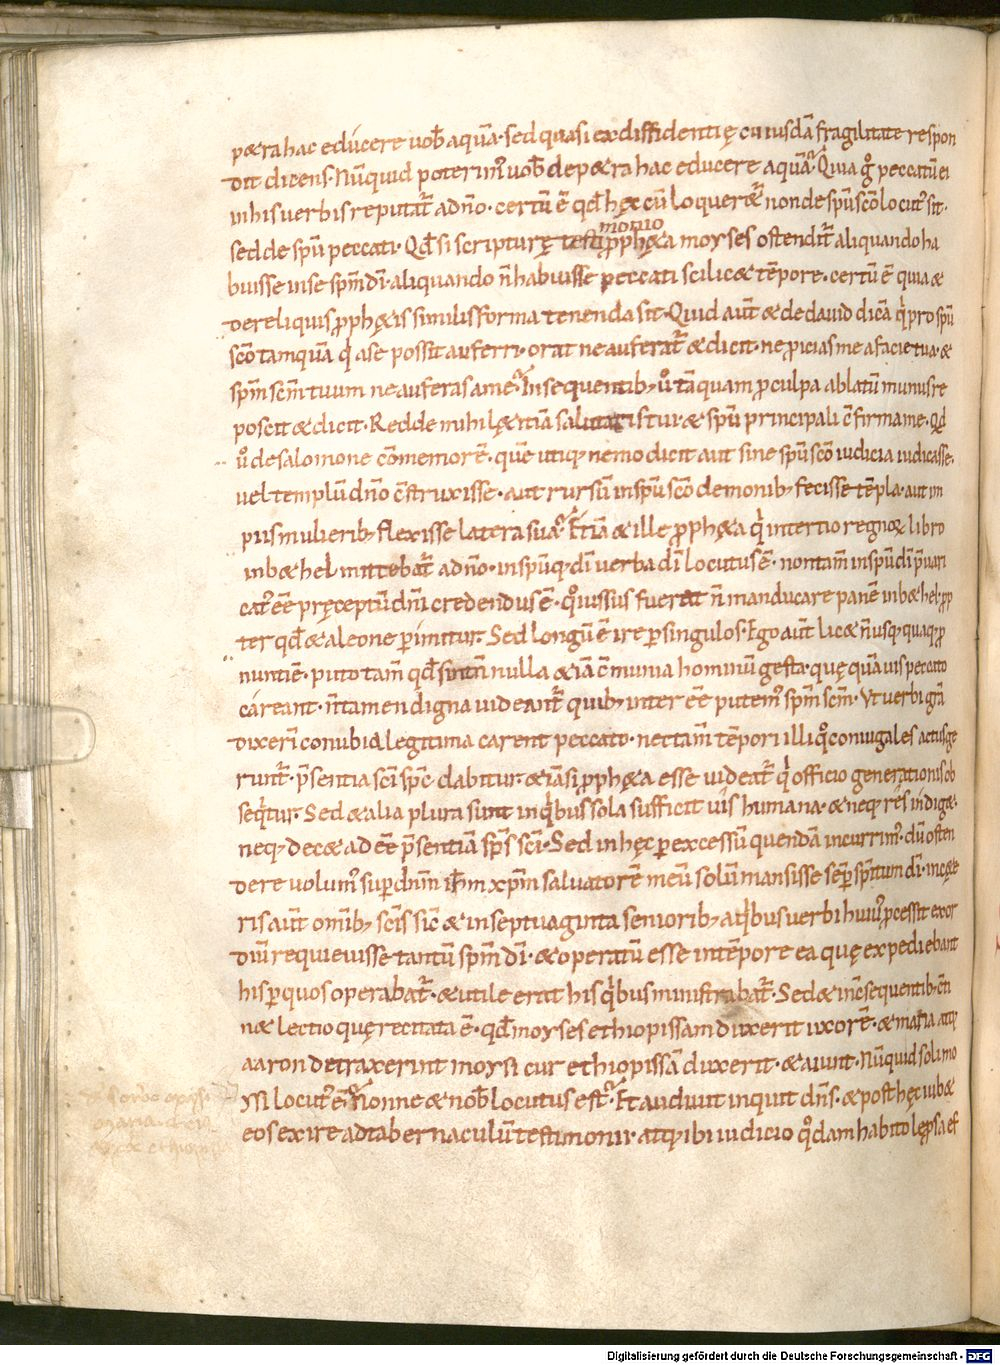 p&ra hac educere uob̄ aquā· sed quasi ex diffidentię cuiusdā fragilitate respon
dit dicens· Nūquid poterim᾽ uob̄ de p&ra hac educere aquā· Quia g̊ peccatū ei
in his uerbis reputat̄ ad dn̄o· certū ē qđ hęc cū loquer&̄ non de spū scō locut᾽ sit·
sed de spū peccati· Qđ si scripturę testimonio
p̱ph&a moyses ostendit̄ aliquando ha
buisse in se spm̄ dī· aliquando n̄ habuisse peccati scilic& tēpore· certū ē quia &
de reliquis p̱ph&is similis forma tenenda sit· Quid aūt & de dauid dicā q̇ pro spū
scō tamquā q̇ a se possit auferri· orat ne auferat̄ & dicit· ne p̱icias me a facie tua· &
spm̄ scm̄ tuum ne auferas a me· In sequentib; ů tāquam p̱ culpa ablatū munus re
poscit & dicit· Redde mihi l&itiā salutaris tui· & spū principali c̄firma me· Qđ
ů de salomone cōmemorē· quē utiq; nemo dicit aut sine spū scō iudicia iudicasse·
uel templū dn̄o c̄struxisse· aut rursū in spū scō demonib; fecisse tēpla· aut im
piis mulierib; flexisse latera sua· Etiā & ille p̱ph&a q̇ in tertio regnoꝝ libro
in b&hel mittebat̄ ad dn̄o· in spū q; dī uerba dī locutus ē· non tam̄ in spū dī p̄uari
cat᾽ eē pręceptū dn̄i credendus ē· q̊ iussus fuerat n̄ manducare panē in b&hel· p̱p
ter qđ & a leone p̱imitur· Sed longū ē ire p̱ singulos· Ego aūt lic& n̄usq; quaq; p̱
nuntiē· puto tam̄ qđ sint n̄nulla &iā c̄munia hominū gesta· quę quāuis peccato
careant· n̄ tamen digna uideant̄ quib; inter eē putem᾽ spm̄ scm̄· Vt uerbi grā
dixerī conubia legitima carent peccato· nec tam̄ tēpori illi q̊ coniugales actus ge
runt̄· p̄sentia scī spc̄ dabitur· &iāsi p̱ph&a esse uideat̄ q̇ officio generationis ob
seq̇tur· Sed & alia plura sunt in q̇bus sola sufficit uis humana· & neq; res indig&·
neq; dec& adeē p̄sentiā sps̄ scī· Sed in hęc p̱ excessū quendā incurrim᾽· dū osten
dere uolum᾽ sup̱ dnm̄ ih̄m xp̄m saluatorē meū solū mansisse semp̱ spiritum dī· in c&e
ris aūt omīb; scīs sic̄ & in septuaginta seniorib; a q̇bus uerbi huiu᾽ p̱cessit exor
diū requieuisse tantū spm̄ dī· & operatū esse in tēpore ea quę expediebant
his p̱ quos operabat̄· & utile erat his q̇bus ministrabat̄· Sed & in c̄sequentib; c̄ti
n& lectio quę recitata ē· qđ moyses ethiopissam duxerit uxorē· & maria atq;
aaron detraxerint moysi cur ethiopissā duxerit· & aiunt· Nūquid soli mo
ysi locut᾽ ē· Nonne & nob̄ locutus est· Et audiuit inquit dn̄s· & post hęc iub&
eos exire ad tabernaculū testimonii· atq; ibi iudicio q̊dam habito lęprsa ef